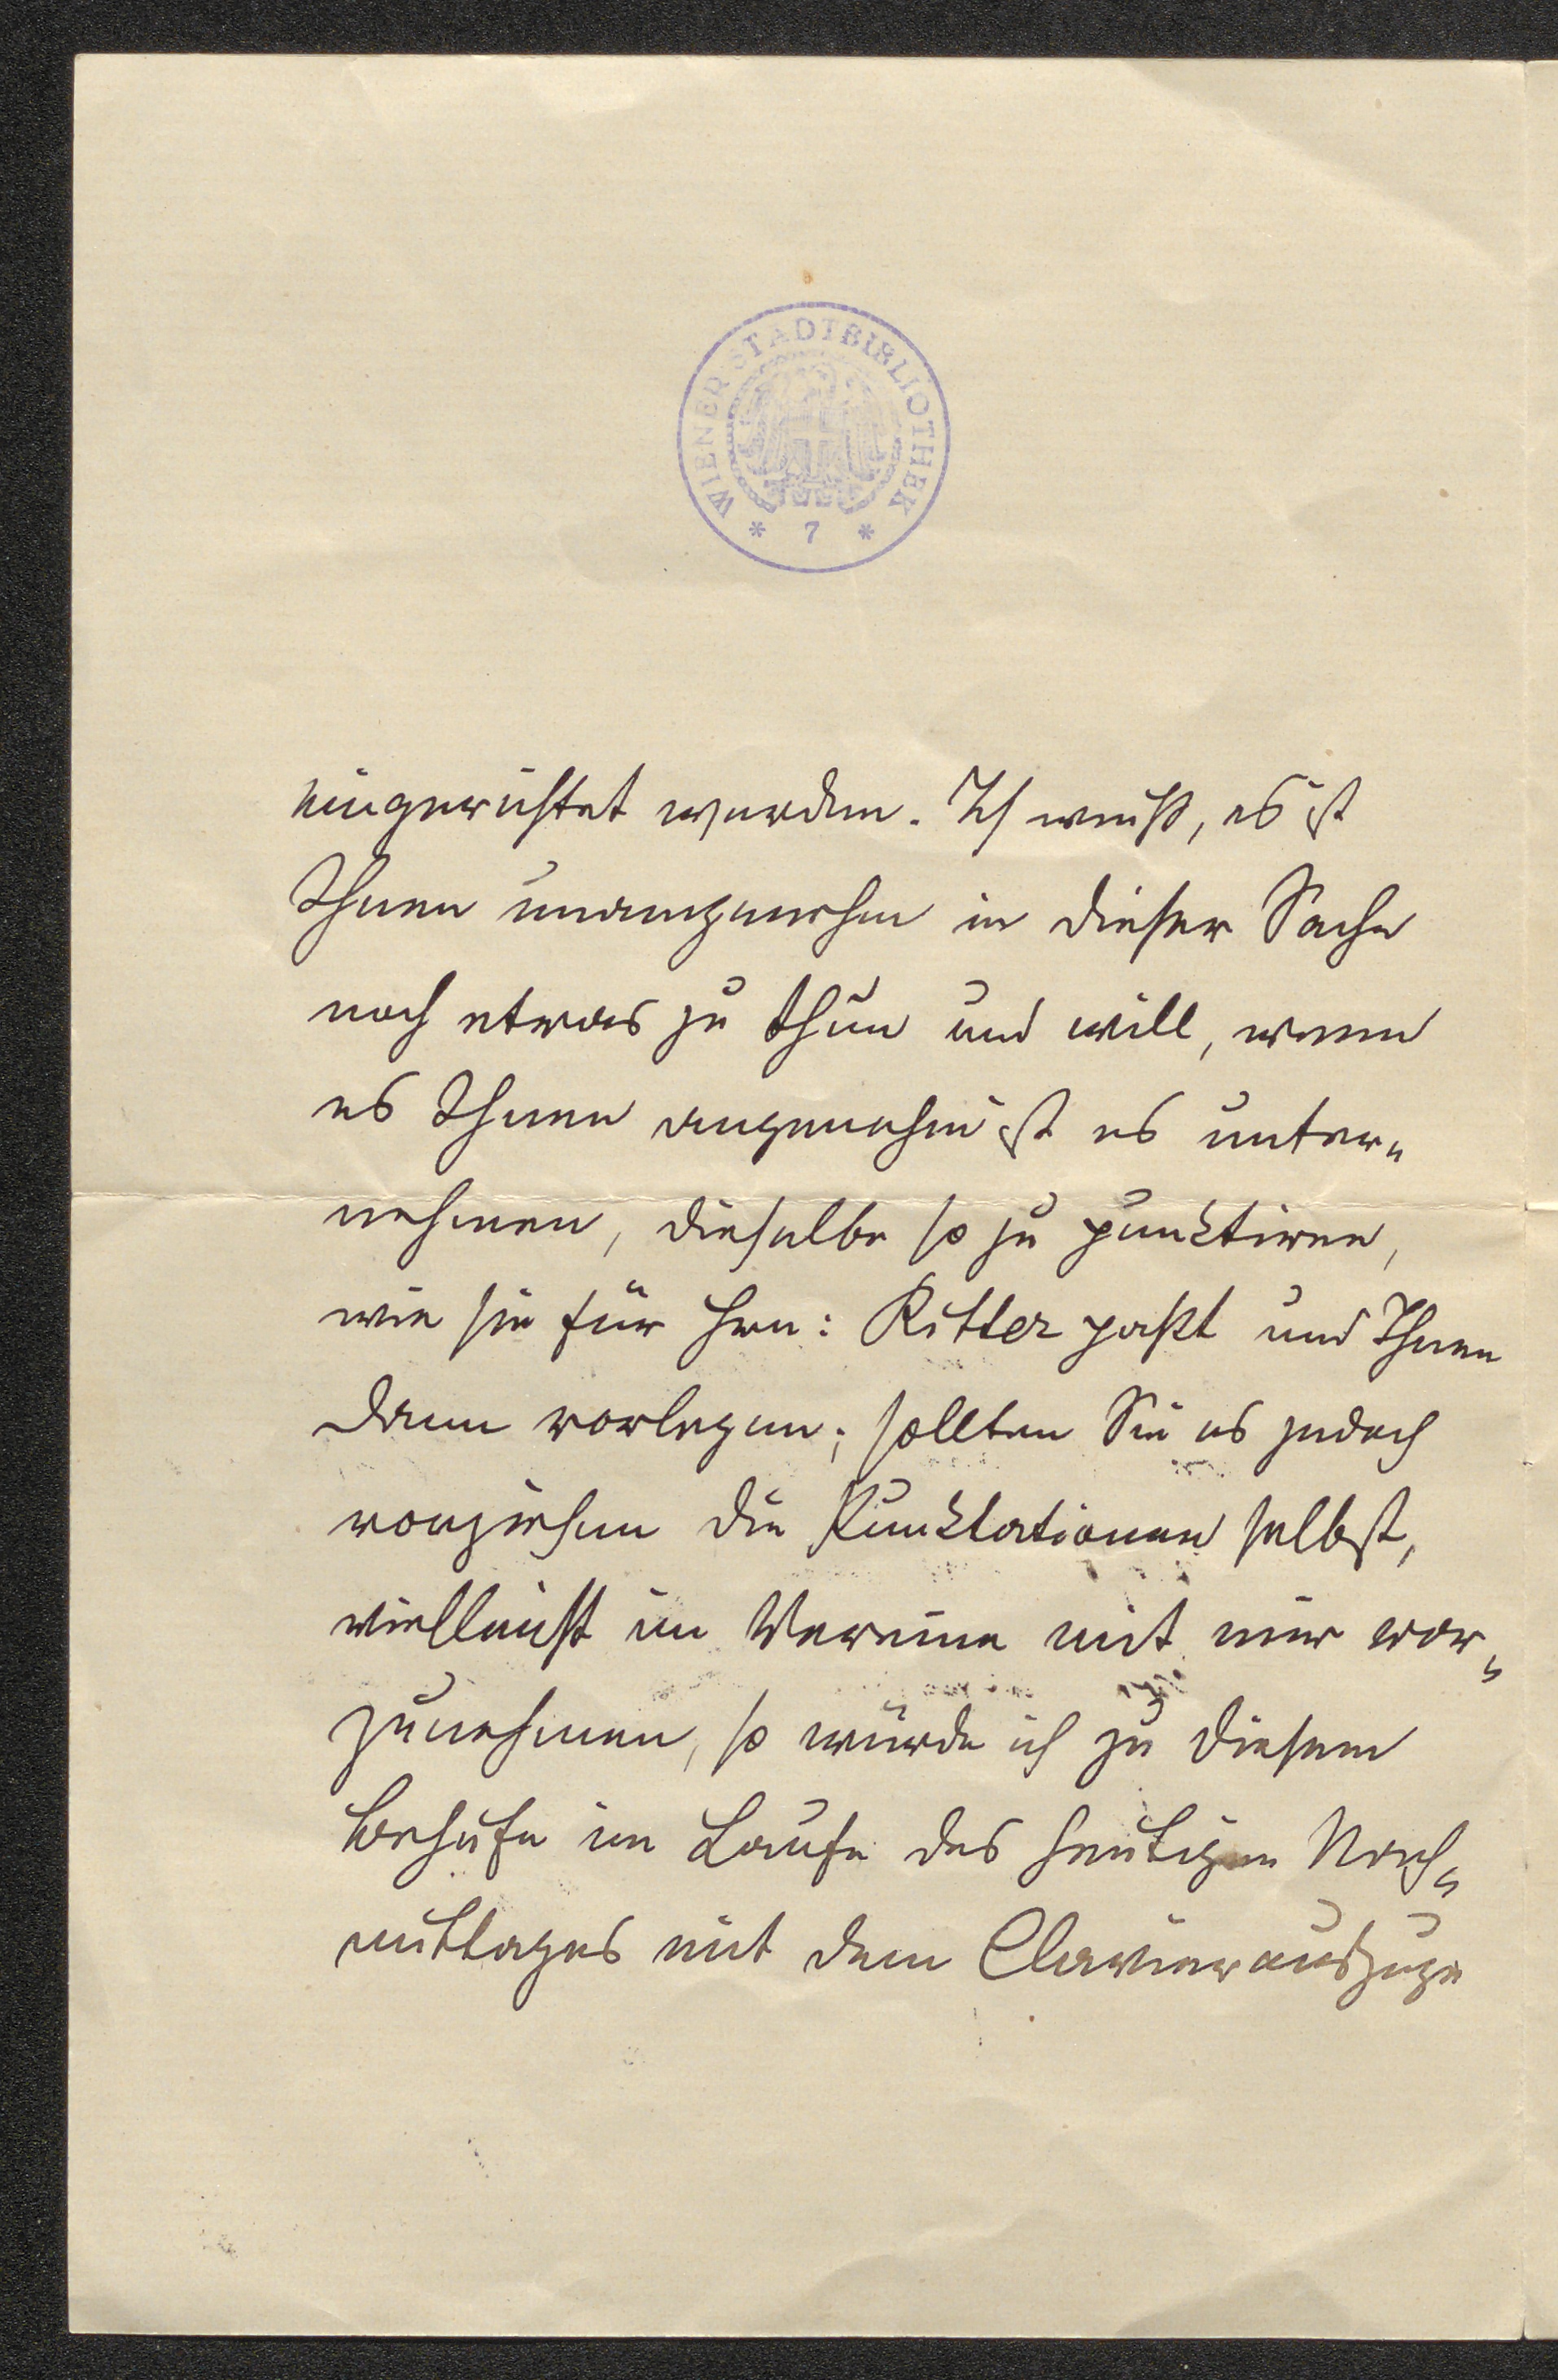 WIENER STADTBIBLIOTHEK
* 7 *
eingerichtet werden. Ich weiß, es ist
Ihnen unangenehm in dieser Sache
noch etwas zu thun und will, wenn
es Ihnen angenehm ist es unter„
nehmen, dieselbe so zu punktiren,
wie sie für Hrn: Ritter paßt und Ihnen
dann vorlegen; sollten Sie es jedoch
vorziehen die Punktationen selbst,
vielleicht im Vereine mit mir vor„
zunehmen, so würde ich zu diesem
Behufe im Laufe des heutigen Nach„
mittages mit dem Clavierauszuge